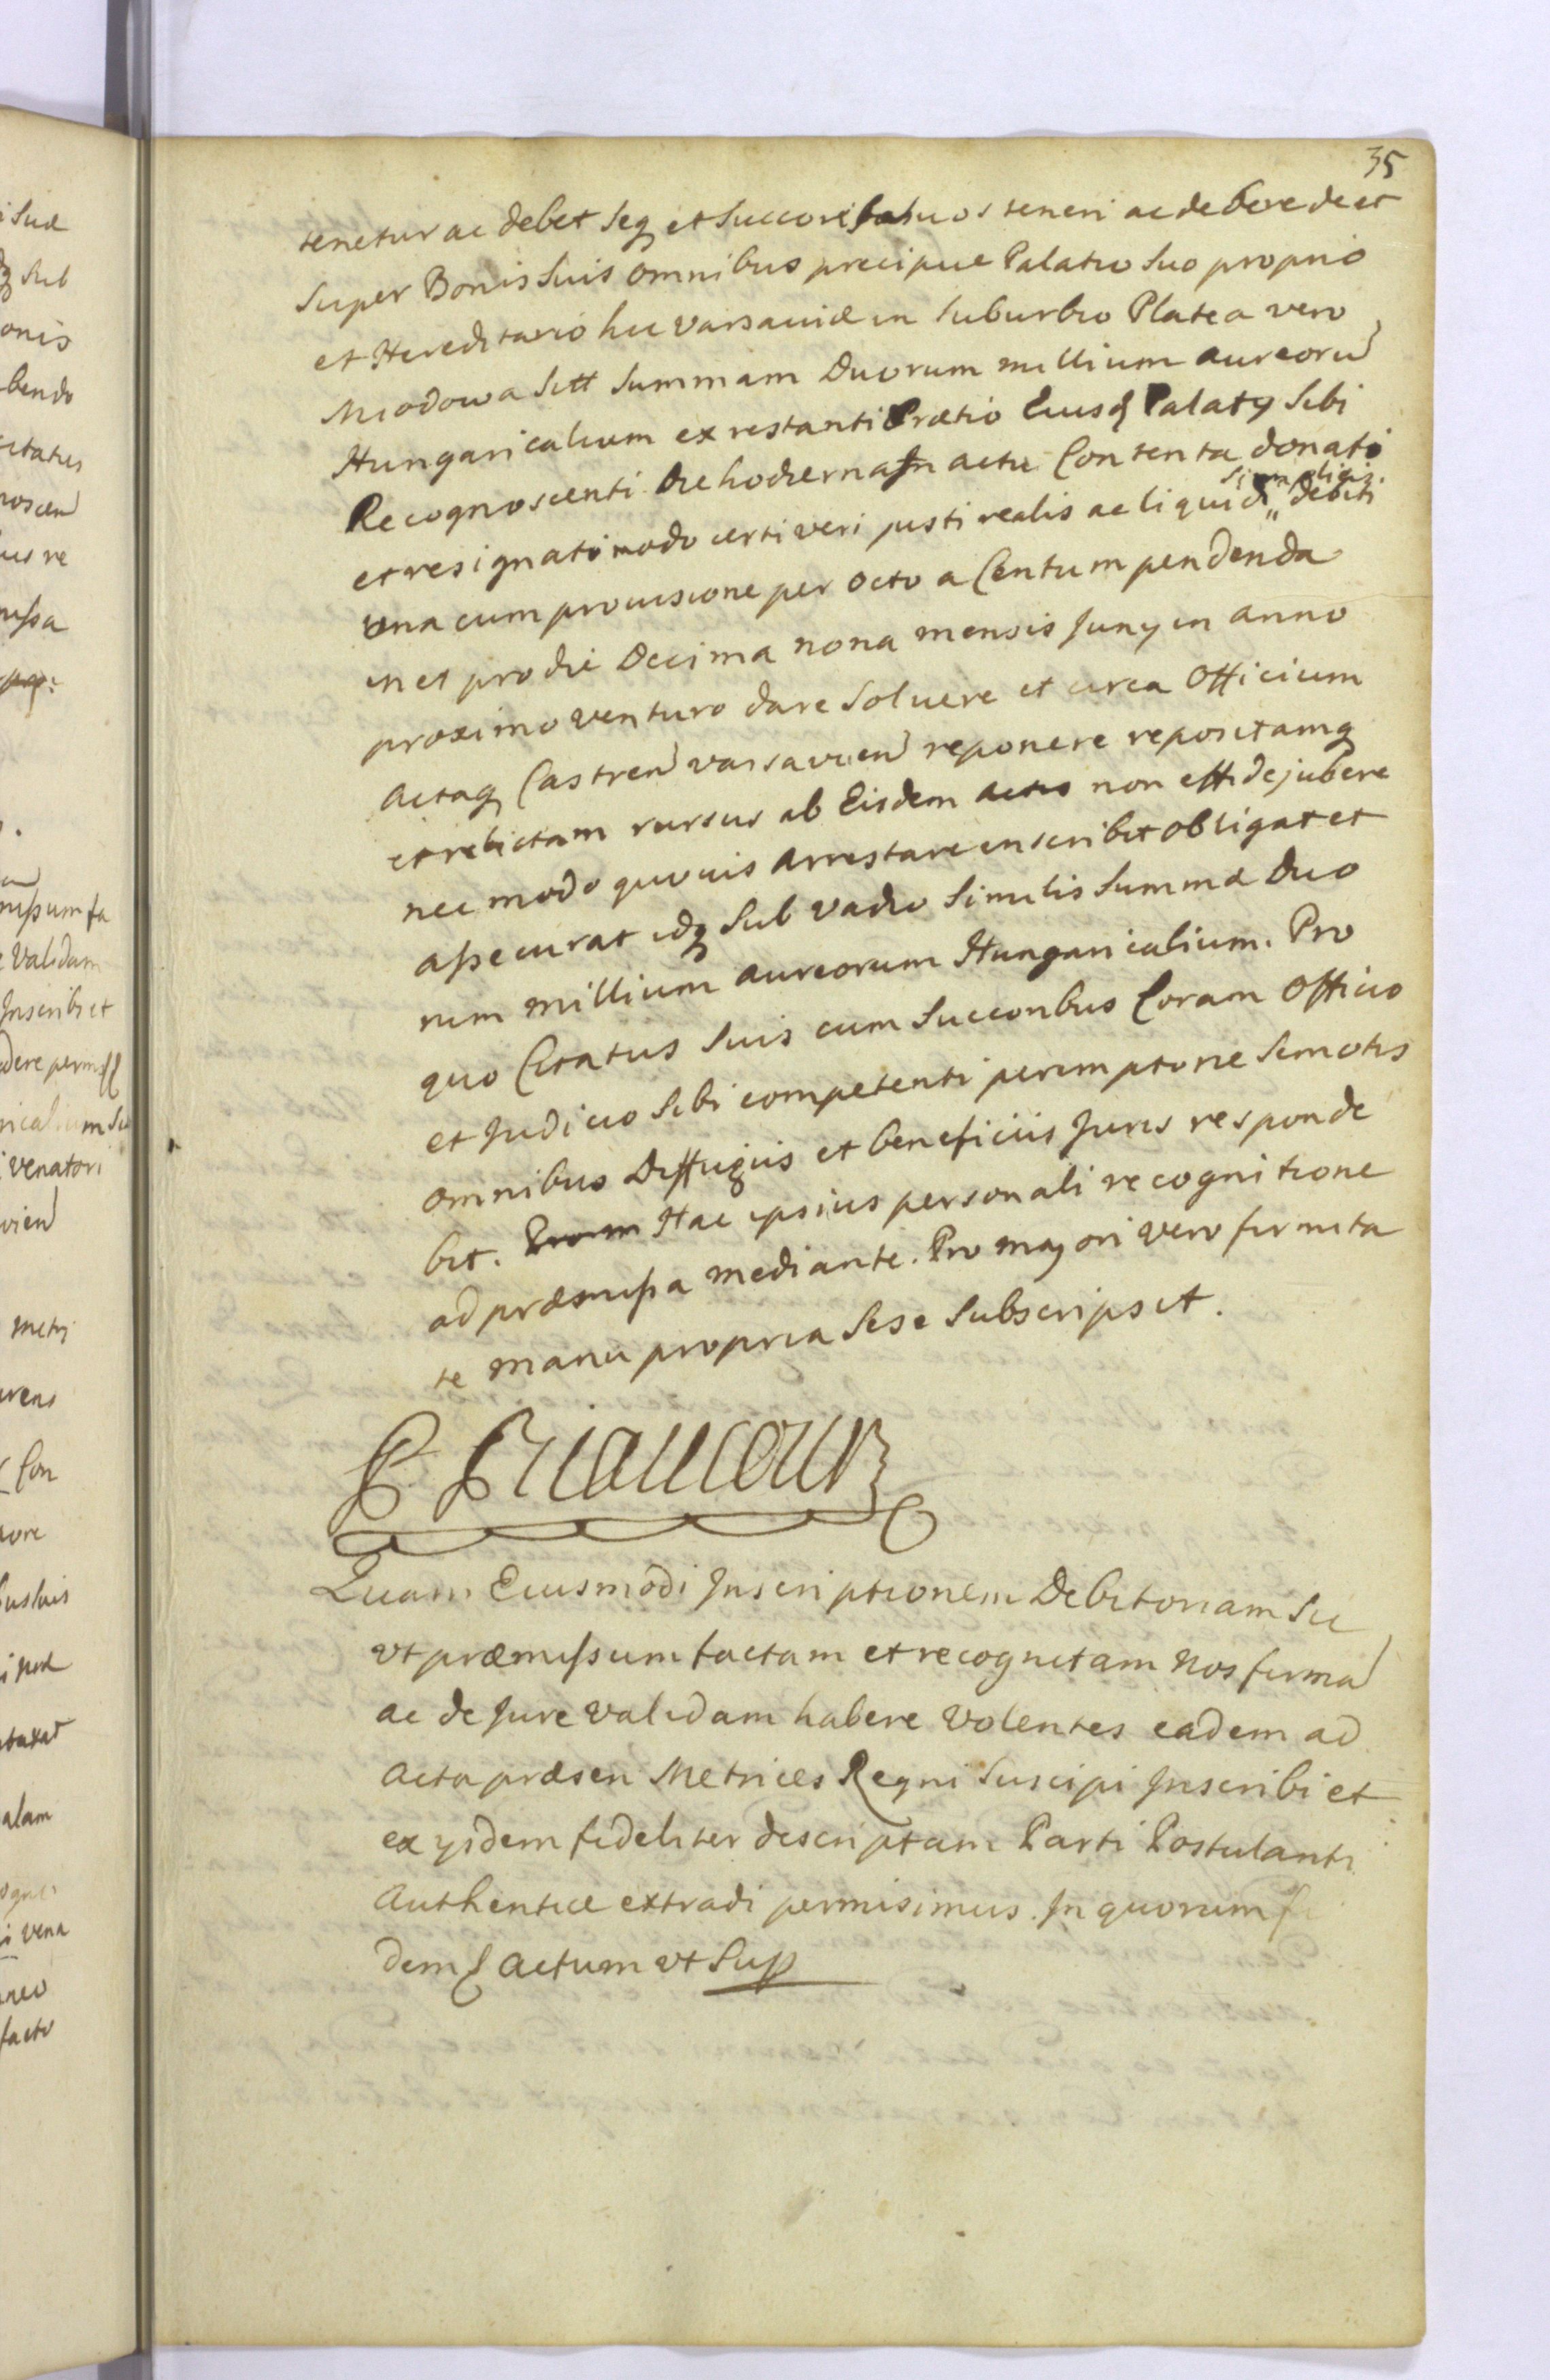 35
tenetur ac debet seq et Succores suos teneri ac debere de et
super Bonis suis omnibus precipue Palatio suo proprio
et Hereditario hic Varsaviæ in suburbio Platea vero
Miodowa sitt summam Duorum millium aureorū
Hungaricalium ex restanti Prætio Eiusd Palaty sibi
Recognoscenti die hodierna in actu Contenta donati
et resignati modo certi veri justi realis ac liquidi simpliciz debiti
una cum provisione per octo a Centum pendenda
in et pro die Decima nona mensis Juny in anno
proximo venturo dare solvere et circa Officium
actaq Castren Varsavien reponere repositamq
et relictam rursus ab Eisdem actis non effidejubere
nec modo quovis arrestare inscribit obligat et
assecurat idq sub vadio similis summæ Duo
rum millium aureorum Hungaricalium. Pro
quo Citatus suis cum Succoribus Coram Officio
et Judicio sibi competenti peremptorie semotis
omnibus Diffugiis et beneficiis Juris responde
bit. Hac ipsius personali recognitione
ad præmissa mediante. Pro majori vero firmita
te manu propria sese subscripsit.
P. Riaucour
Quam Eiusmodi Inscriptionem Debitoriam sic
ut præmissum factam et recognitam nos firmā
ac de jure validam habere volentes eadem ad
acta præsen Metrices Regni suscipi Inscribi et
ex ysdem fideliter descriptam Parti Postulanti
Authentice extradi permisimus. In quorum fi
dem Actum ut sup
i suæ
q sub
onis
bendo
citatus
noscen
ius re
missa
missum fa
e validam
Inscribi et
dere permiss
ricalium su
i venatori
vien
metri
urens
Con
uore
bus suis
alam
i vena
neo
facto